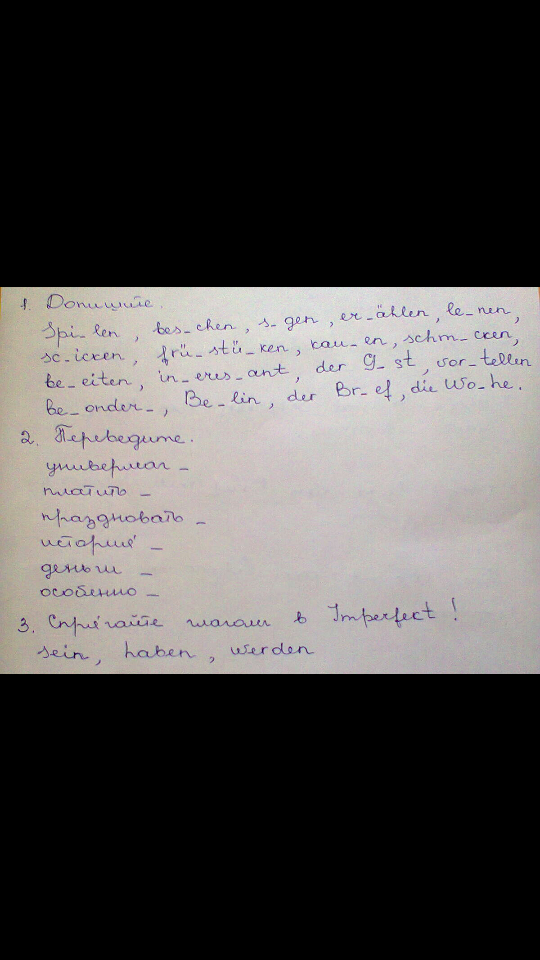 1. Допишите.
Spi_len, bes_chen, s_gen, er_ählen, le_nen,
sc_icken, frü_stü_ken, kau_en, schm_cken,
be_eiten, in_eres_ant, der G_st, vor_tellen
be_onder_, Be_lin, der Br_ef, die Wo_he.
2. Переведите.
универмаг –
платить –
праздновать –
история –
деньги –
особенно –
3. Спрягайте глаголы в Imperfect!
sein, haben, werden